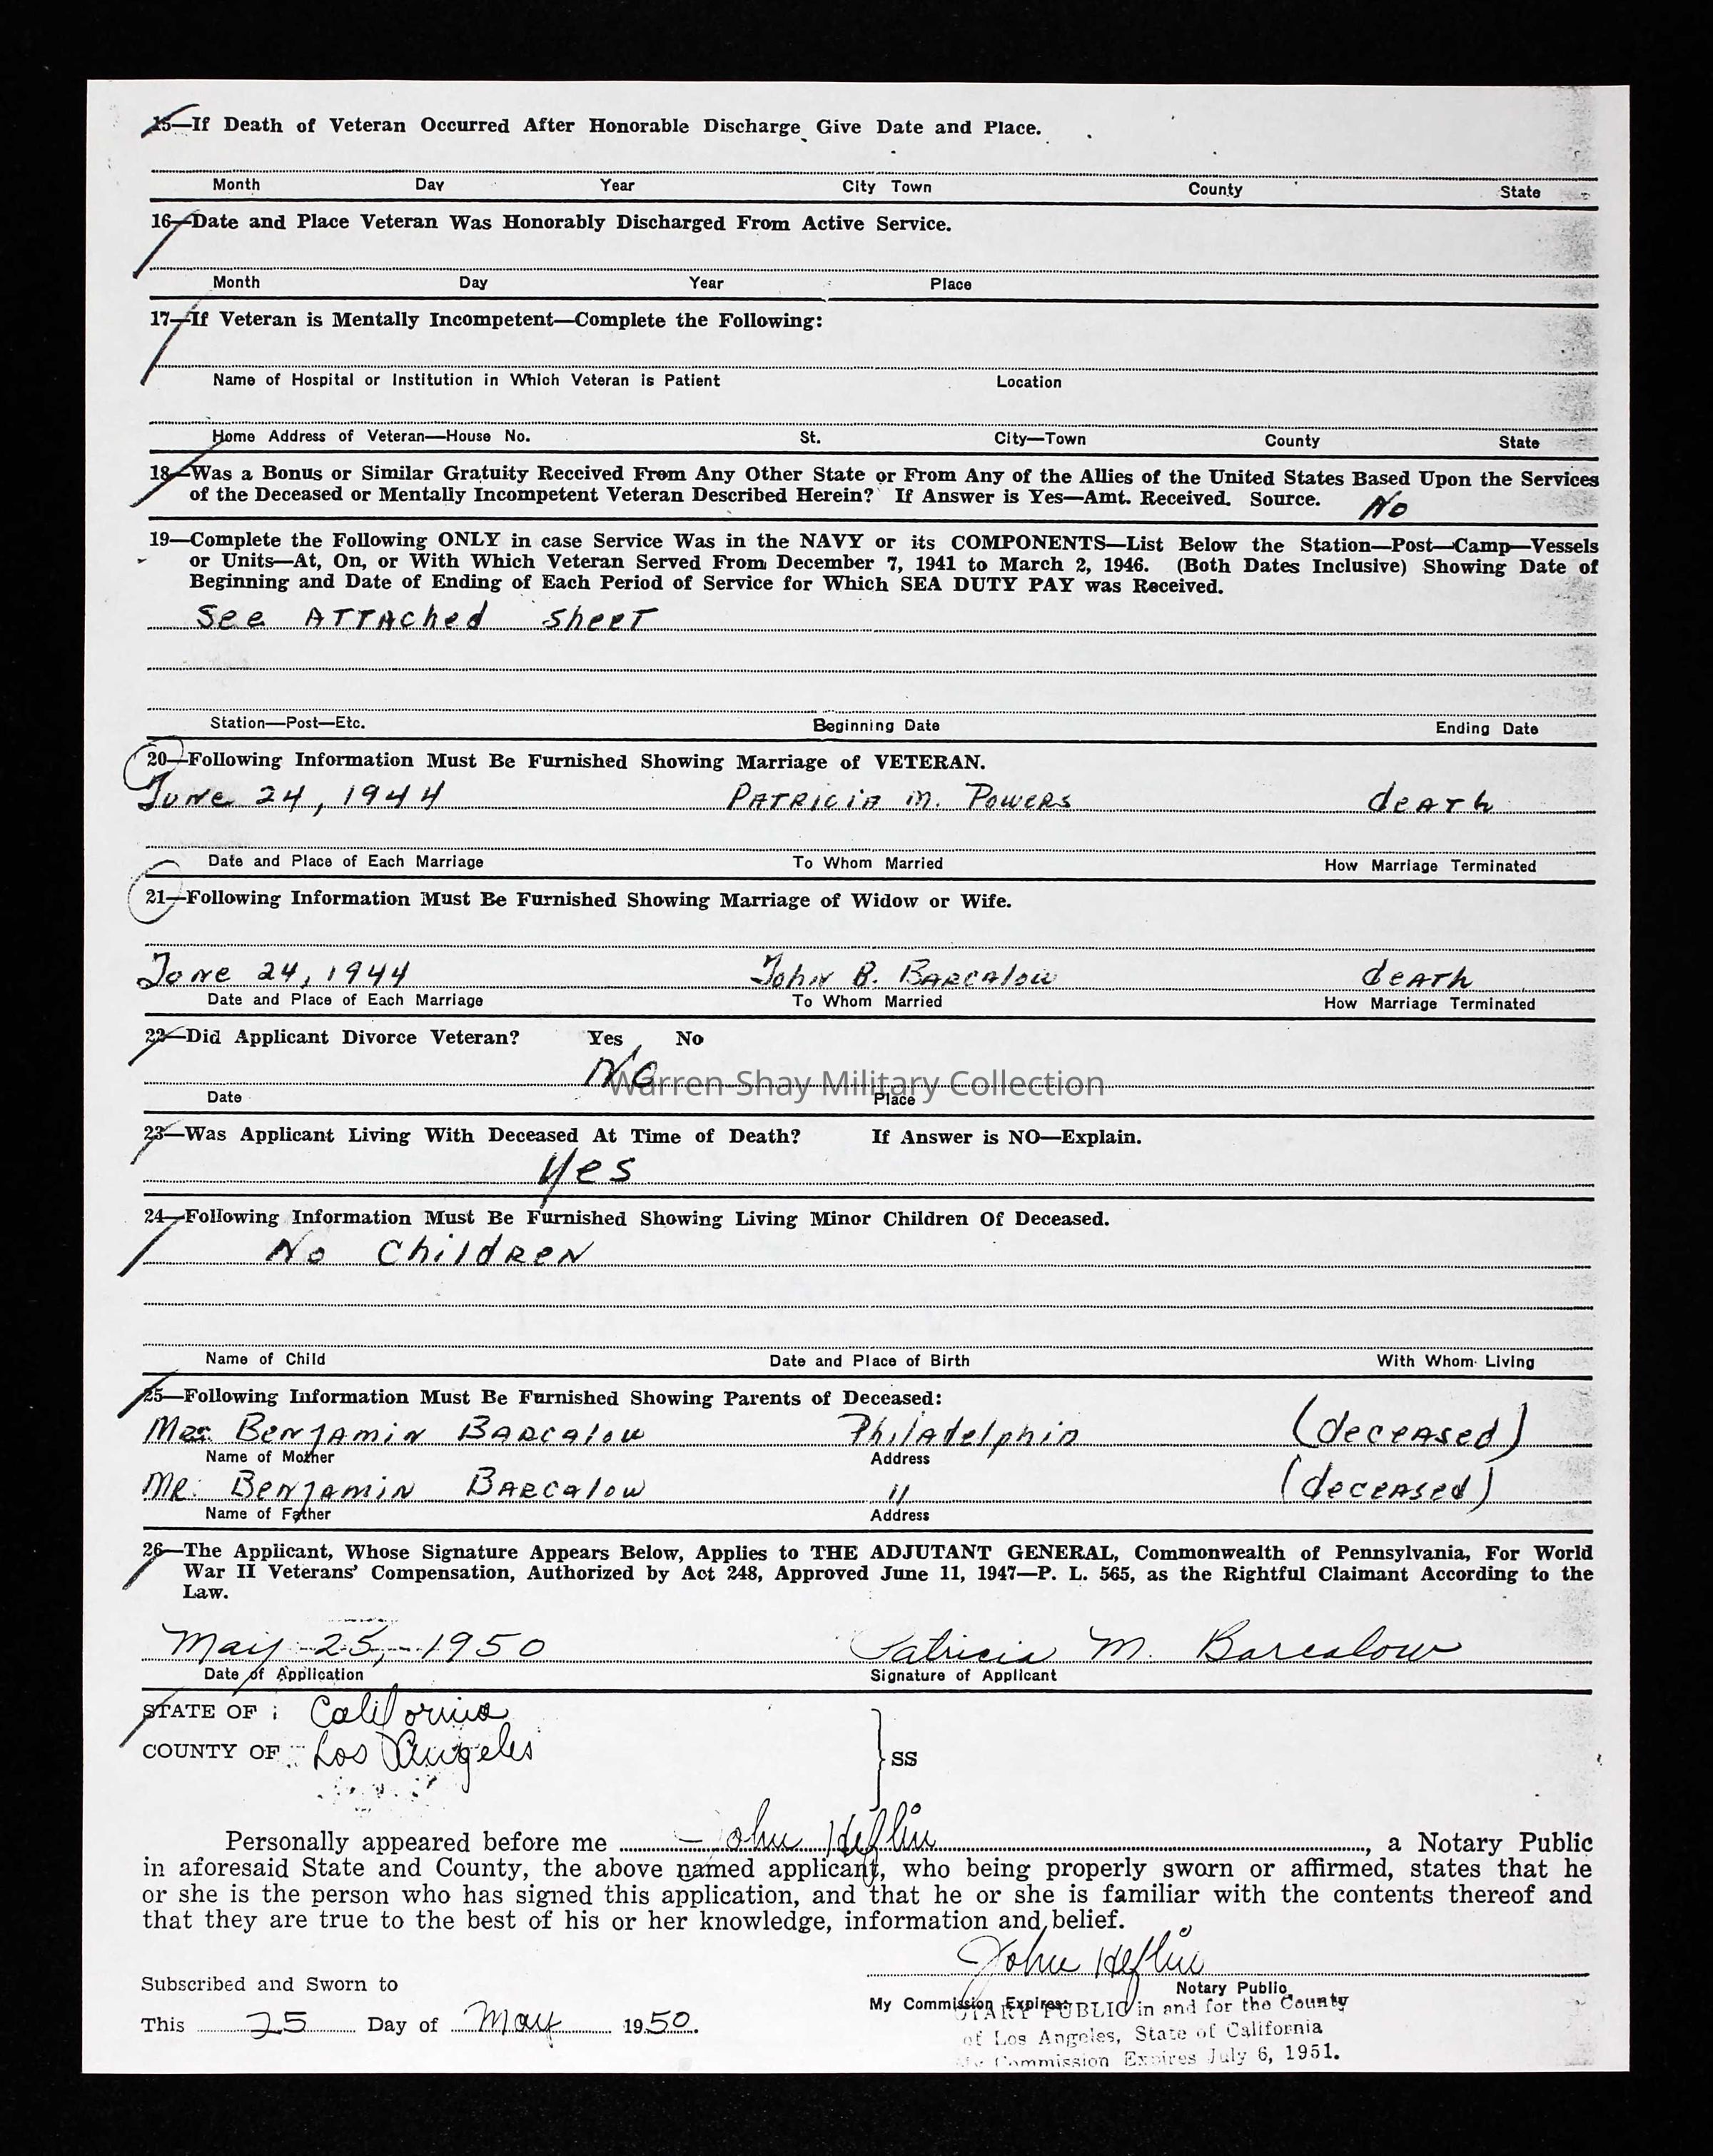 15—If Death of Veteran Occurred After Honorable Discharge Give Date and Place.
Month Day Year City Town County State
16—Date and Place Veteran Was Honorably Discharged From Active Service.
Month Day Year Place
17—If Veteran is Mentally Incompetent—Complete the Following:
Name of Hospital or Institution in Which Veteran is Patient Location
Home Address of Veteran—House No. St. City—Town County State
18—Was a Bonus or Similar Gratuity Received From Any Other State or From Any of the Allies of the United States Based Upon the Services
of the Deceased or Mentally Incompetent Veteran Described Herein? If Answer is Yes—Amt. Received. Source. No
19—Complete the Following ONLY in case Service Was in the NAVY or its COMPONENTS—List Below the Station—Post—Camp—Vessels
or Units—At, On, or With Which Veteran Served From December 7, 1941 to March 2, 1946. (Both Dates Inclusive) Showing Date of
Beginning and Date of Ending of Each Period of Service for Which SEA DUTY PAY was Received.
See ATTAched sheeT
Station—Post—Etc. Beginning Date Ending Date
20—Following Information Must Be Furnished Showing Marriage of VETERAN.
June 24, 1944 PATRICIA M. POWERS deATh
Date and Place of Each Marriage To Whom Married How Marriage Terminated
21—Following Information Must Be Furnished Showing Marriage of Widow or Wife.
June 24, 1944 John B. BARCAlow deATh
Date and Place of Each Marriage To Whom Married How Marriage Terminated
22—Did Applicant Divorce Veteran? Yes No
No
Warren Shay Military Collection
Date Place
23—Was Applicant Living With Deceased At Time of Death? If Answer is NO—Explain.
Yes
24—Following Information Must Be Furnished Showing Living Minor Children Of Deceased.
No ChildReN
Name of Child Date and Place of Birth With Whom Living
25—Following Information Must Be Furnished Showing Parents of Deceased:
Mrs. BenjAmin BARCAlow PhilAdelphia (deceAsed)
Name of Mother Address
MR. BenjAmin BARCAlow " (deceAsed)
Name of Father Address
26—The Applicant, Whose Signature Appears Below, Applies to THE ADJUTANT GENERAL, Commonwealth of Pennsylvania, For World
War II Veterans' Compensation, Authorized by Act 248, Approved June 11, 1947—P. L. 565, as the Rightful Claimant According to the
Law.
May 25, 1950 Patricia M. Barcalow
Date of Application Signature of Applicant
STATE OF : California
COUNTY OF Los Angeles SS
Personally appeared before me John Heflin, a Notary Public
in aforesaid State and County, the above named applicant, who being properly sworn or affirmed, states that he
or she is the person who has signed this application, and that he or she is familiar with the contents thereof and
that they are true to the best of his or her knowledge, information and belief.
John Heflin
Subscribed and Sworn to Notary Public
My Commission Expires:
NOTARY PUBLIC in and for the County
This 25 Day of May 1950.
of Los Angeles, State of California
My Commission Expires July 6, 1951.